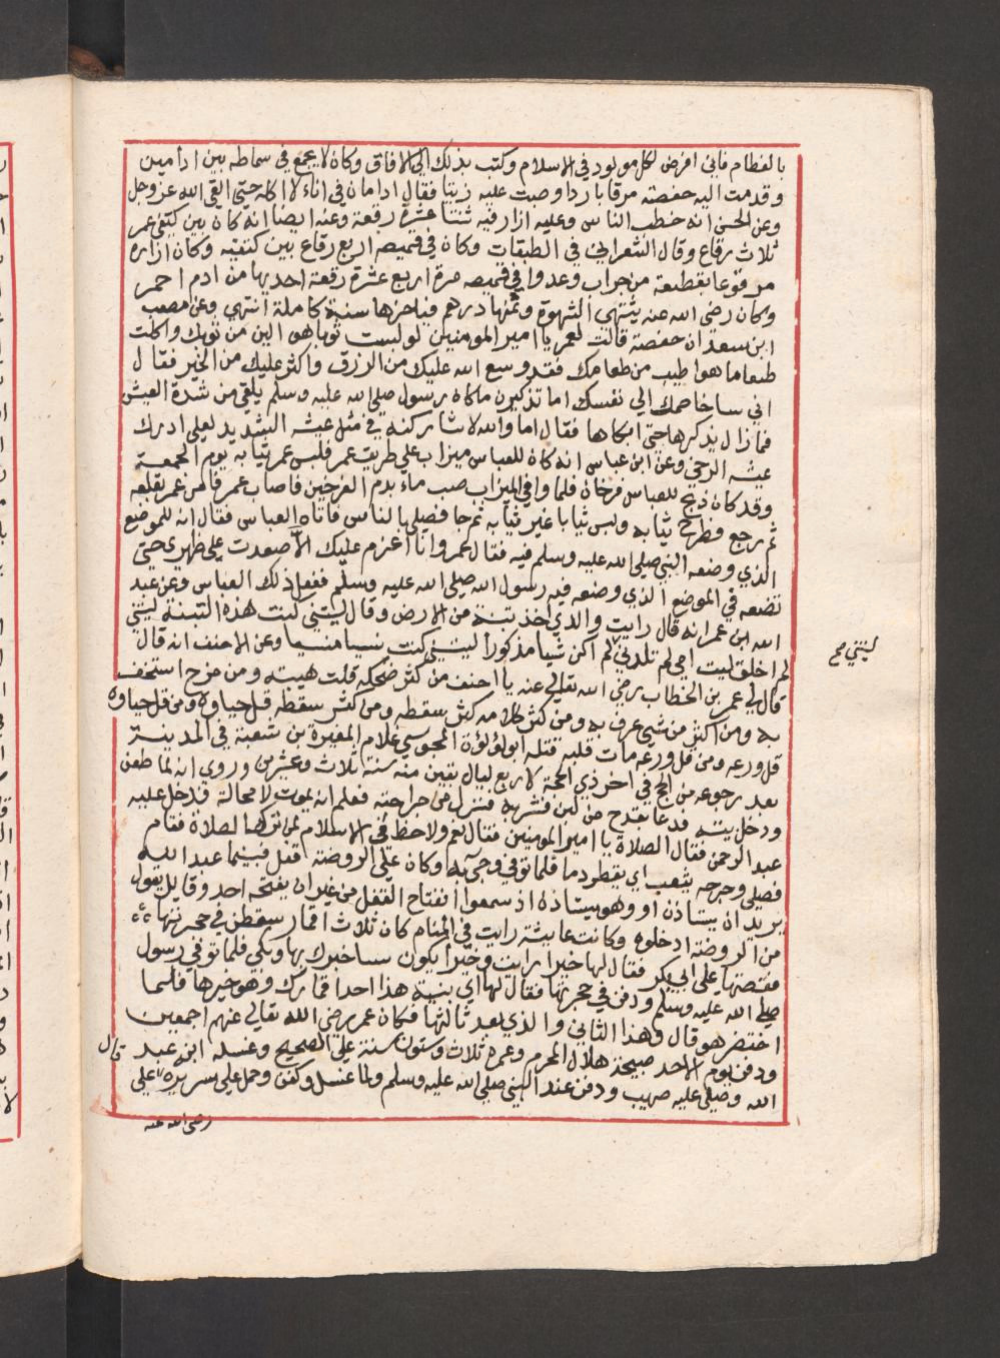 بالفطام فاني افرض لكل مولود في الاسلام وكتب بذلك الي الافاق وكان لا يجمع في سماطه بين ادامين
وقدمت اليه حفصة مرقا باردا وصبت عليه زيتا فقال ادامان في اناء لا اكله حتي القي الله عز وجل
وعن الحسن انه خطب الناس وعليه ازار فيه ثنتا عشرة رقعة وعنه ايضا انه كان بين كتفي عمر
ثلاث رقاع وقال الشعراني في الطبقات وكان في قميصه اربع رقاع بين كتفيه وكان ازاره
مرقوعا بقطيعة من جراب وعدوا في قميصه مرة اربع عشرة رقعة احديها من ادم احمر
وكان رضي الله عنه يشتهي الشهوة وثمنها درهم فيؤخرها سنة كاملة انتهي وعن مصعب
ابن سعد ان حفصة قالت لعمر يا امير المومنين لو لبست ثوبا هو الين من ثوبك واكلت
طعاما هو اطيب من طعامك فقد وسع الله عليك من الرزق واكثر عليك من الخير فقال
اني ساخاصمك الي نفسك اما تذكرين ما كان رسول صلي الله عليه وسلم يلقي من شدة العيش
فما زال يذكرها حتي ابكاها فقال اما والله لاشاركنه في مثل عيشه الشديد لعلي ادرك
عيشه الرخي وعن ابن عباس انه كان للعباس ميزاب علي طريق عمر فلبس عمر ثيابه يوم الجمعة
وقد كان ذبح للعباس فرخان فلما وافي الميزاب صب ماء بدم الفرخين فاصاب عمر فامر عمر بقلعه
ثم رجع فطرح ثيابه ولبس ثيابا غير ثيابه ثم جا فصلي بالناس فاتاه العباس فقال انه للموضع
الذي وضعه النبي صلي الله عليه وسلم فيه فقال عمر وانا اعزم عليك الا صعدت علي ظهري حتي
تضعه في الموضع الذي وضعه فيه رسول الله صلي الله عليه وسلم ففعل ذلك العباس وعن عبد
الله ابن عمر انه قال رايت والدي اخذ تبنة من الارض وقال ليتني كنت هذه التبنة ليتني
لم اخلق ليت امي لم تلدني لم اكن شيا مذكورا ليتني كنت نسيا منسيا وعن الاحنف انه قال
ليتني صح
قال لي عمر بن الخطاب رضي الله تعالي عنه يا احنف من كثر ضحكه قلت هيبته ومن مزح استخف
به ومن اكثر من شي عرف به ومن كثر كلامه كثر سقطه ومن كثر سقطه قل حياوه ومن قل حياوه
قل ورعه ومن قل ورعه مات قلبه قتله ابو لؤلؤة المجوسي غلام المغيرة بن شعبة في المدينة
بعد رجوعه من الحج في اخر ذي الحجة لاربع ليال بقين منه سنة ثلاث وعشرين وروي انه لما طعن
ودخل بيته فدعا بقدح من لبن فشربه فنزل من جراحته فعلم انه يموت لا محالة فدخل عليه
عبد الرحمن فقال الصلاة يا امير المومنين فقال نعم ولا حظ في الاسلام لمن ترك الصلاة فقام
فصلي وجرحه يثعب اي يقطر دما فلما توفي وجي به وكان علي الروضة قفل فبينما عبد الله
يريد ان يستاذن او وهو يستاذن اذ سمعوا انفتاح القفل من غير ان يفتحه احد وقايل يقول
من الروضة ادخلوه وكانت عايشة رايت في المنام كان ثلاث اقمار سقطن في حجرتها
فقصتها علي ابي بكر فقال لها خيرا رايت وخيرا يكون ساخبرك بها وبكي فلما توفي رسول
صلي الله عليه وسلم ودفن في حجرتها فقال لها اي بنية هذا احد اقمارك وهو خيرها فلما
اختضر هو قال وهذا الثاني والذي بعد ثالثها فكان عمر رضي الله تعالي عنهم اجمعين
ودفن يوم الاحد صبيحة هلال المحرم وعمره ثلاث وستون سنة علي الصحيح وغسله ابنه عبد
الله وصلي عليه صهيب ودفن عند النبي صلي الله عليه وسلم ولما غسل وكفن وحمل علي سريره علي
قال
رضي الله عنه